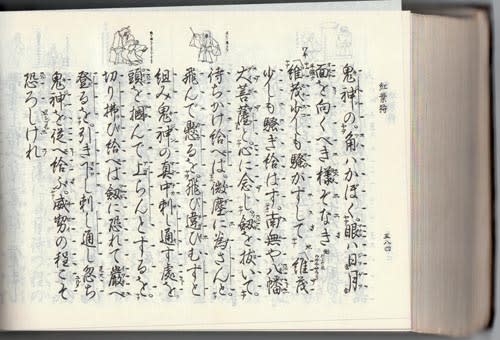 紅葉狩
五八四
鬼神の。角ハかぼく。眼ハ日月
面を向くべき様ぞなき
維茂少しも騒がずして 維茂
少しも騒ぎ給はず。南無や八幡
大菩薩と心に念じ。剱を抜いて。
待ちかけ給へば。微塵に為さんと。
飛んで懸るを。飛び違ひむずと
組み鬼神の真中刺し通す處を
頭を掴んで上らんとするを。
切り拂ひ給へば剱に恐れて巌へ
登るを。引き下し刺し通し。忽ち
鬼神を従へ給ふ。威勢の程こそ
恐ろしけれ